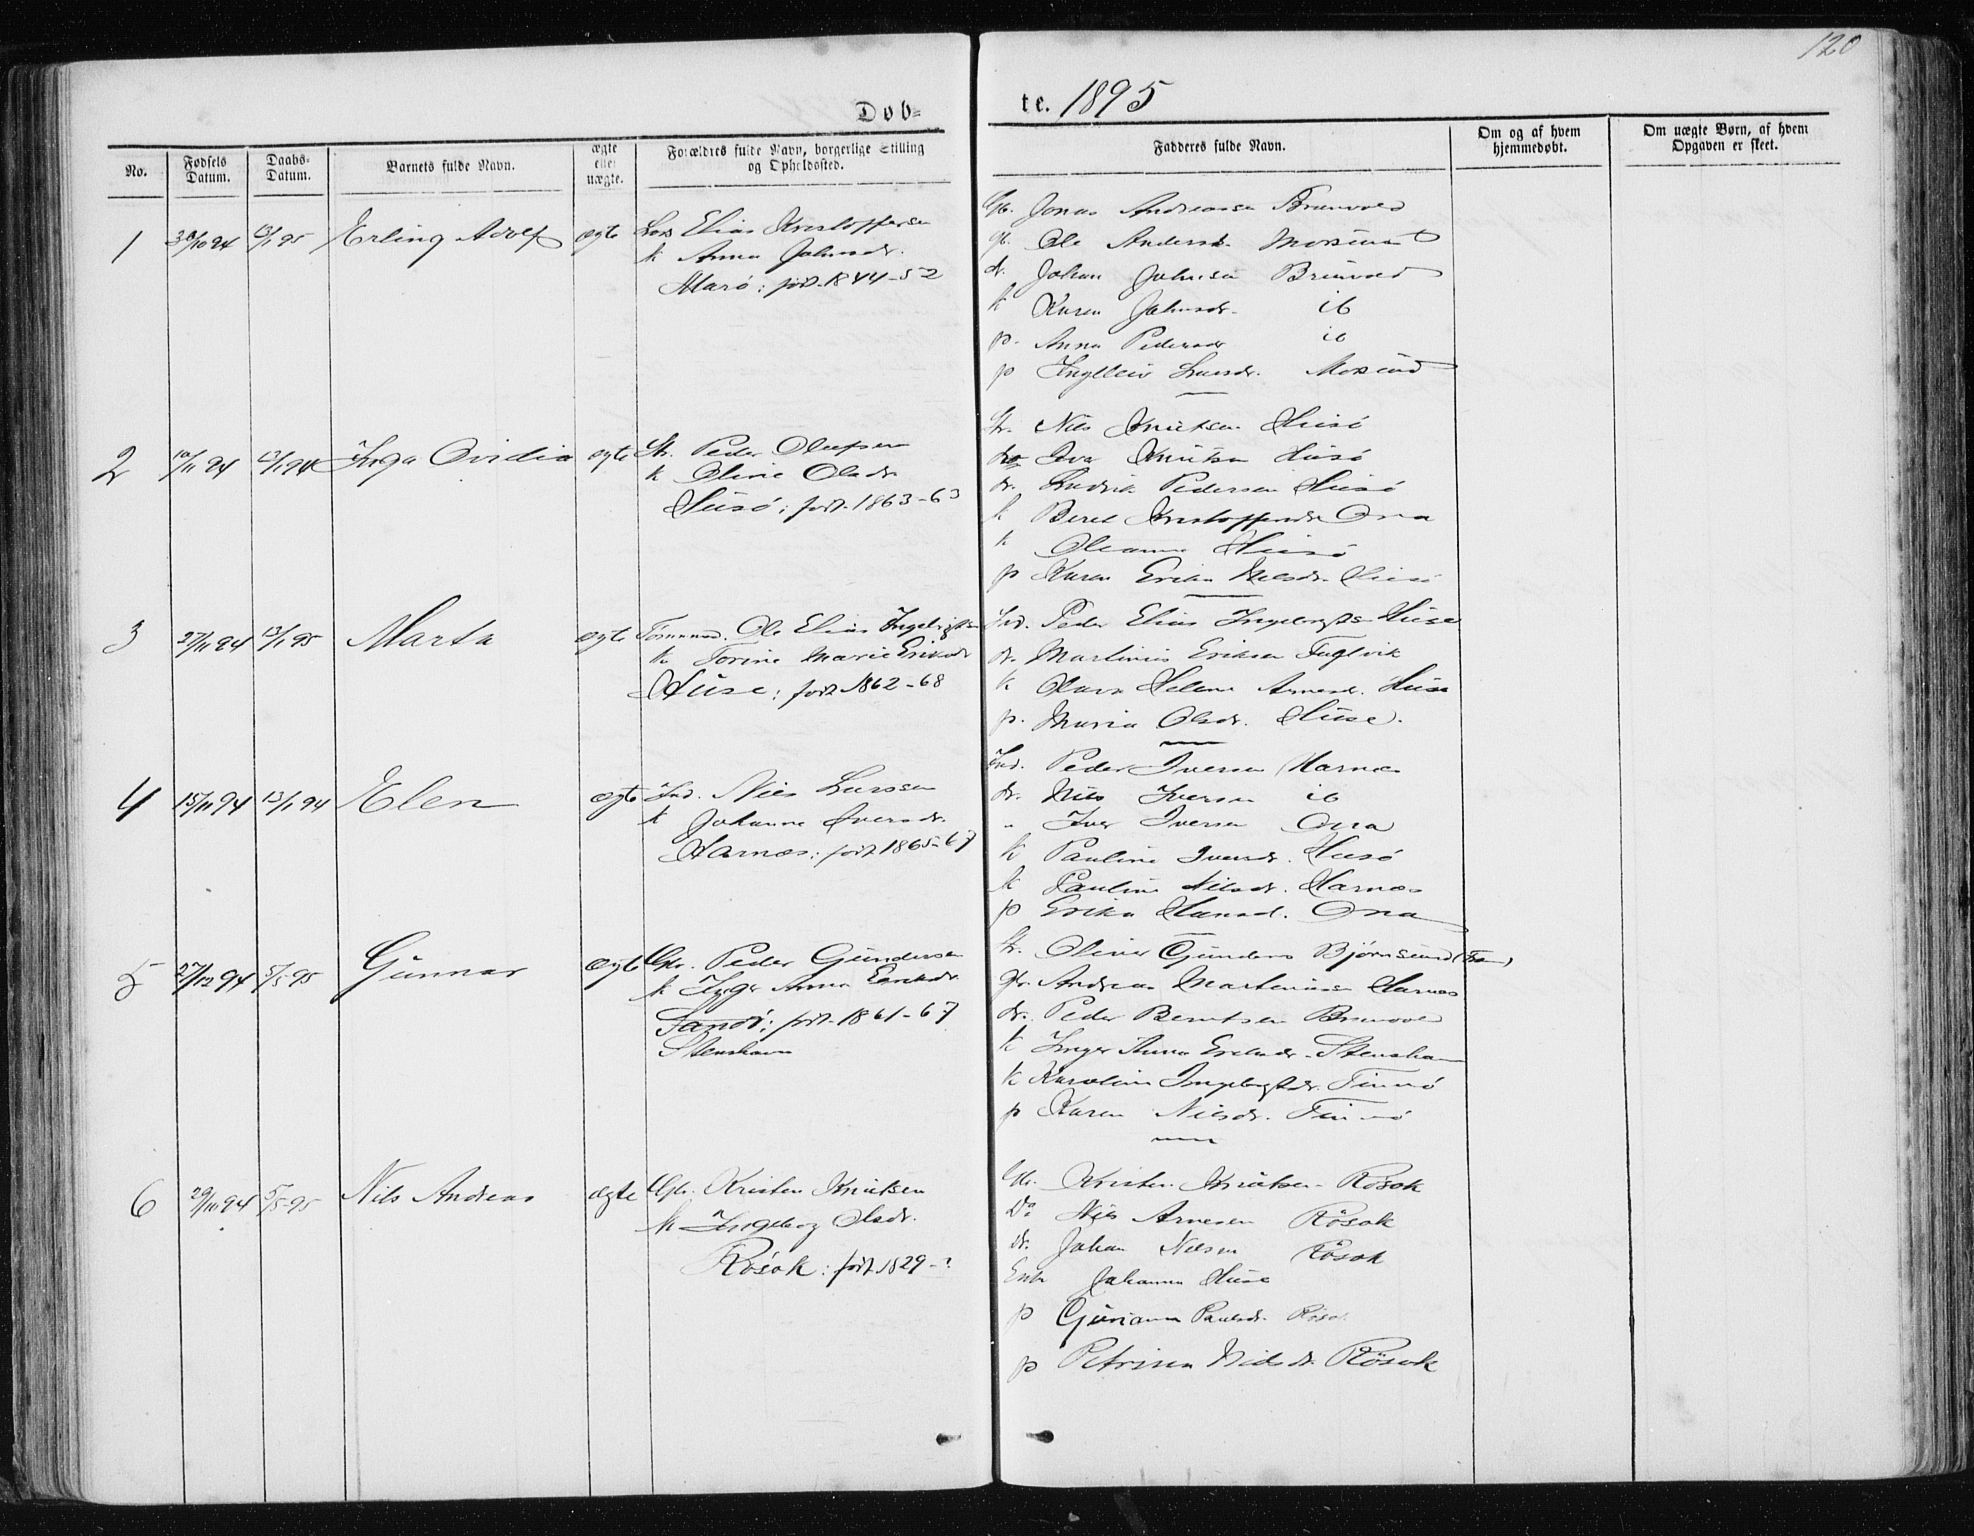 120
Døb-
te. 1895
No.
Fødsels Datum.
Daabs-Datum.
Barnets fulde Navn.
ægte eller uægte.
Forældres fulde Navn, borgerlige Stilling og Opholdssted.
Fadderes fulde Navn.
Om og af hvem hjemmedøbt.
Om uægte Børn, af hvem Opgaven er skeet.
1 30/10 94 13/1 95 Erling Adolf ægte Elias Kristoffersen
k Anna Johnsdr.
Marø: født 1844-52
Gb. Jonas Andreassen Brunvold
gb. Ole Anders. Morsund
dr. Johan Johnsen Brunvold
k Karen Johnsdr. ib
p. Anna Pedersdr ib
p Larsdr. Morsund
2 10/11 94 13/1 94 Inga Ovidia ægte Str. Peder Olufsen
k Oline Olsdr
Husø; født 1863-63
Str. Nils Knutsen Husø
Iver Knutsen Husø
dr. Pedersen Husø
k Beret Kristoffersdr Ona
k Oleanna Husø
p Karen Erika Nilsdr. Husø
3 27/11 94 13/1 95 Marta ægte Tømmmd. Ole Elias Ingebrigtsen
k Torine Marie Eriksdr
Huse: født 1862-68
Ind. Peder Elias Ingebrigtsen Huse
dr. Martinus Eriksen Fuglvik
k Olava Helene Arnesd. Huse
p. Maria Olsdr. Huse.
4 15/11 94 13/1 94 Elen ægte Ind. Niels Larssen
k Johanna Iversdr.
Harnæs: født 1865-67
Ind. Peder Iversen Harnæs
dr. Nils Iversen ib
" Iver Iversen Ona
k Pauline Iversdr. Husø
k Pauline Nilsdr. Harnæs
p Erika Hansd. Ona
5 27/12 94 5/5-95 Gunnar ægte Gbr. Peder Gundersen
k Inger Anna Eriksdr
Sandø; født 1861-67
Stenshavn
Str. Oliver Gunders Bjørnsund (Fræn)
gbr. Andreas Martinussen Harnæs
dr. Peder Berntsen Brunvold
k Inger Anna Eriksdr. Stenshavn
k Karoline Ingebrigtsdr. Finnø
p Karen Nilsdr. Finnø
6 29/10 94 5/5-95 Nils Andreas ægte Gbr. Kristen Knutsen
k Ingeborg Olsdr.
Røsok: født 1829-?
Gbr. Kristen Knutsen Røsok
Do Nils Arnesen Røsok
dr. Johan Nilsen Røsok
Enke Johanna Huse
p Gurianna Paulsdr. Røsok
p Petrina Nilsdr. Røsok